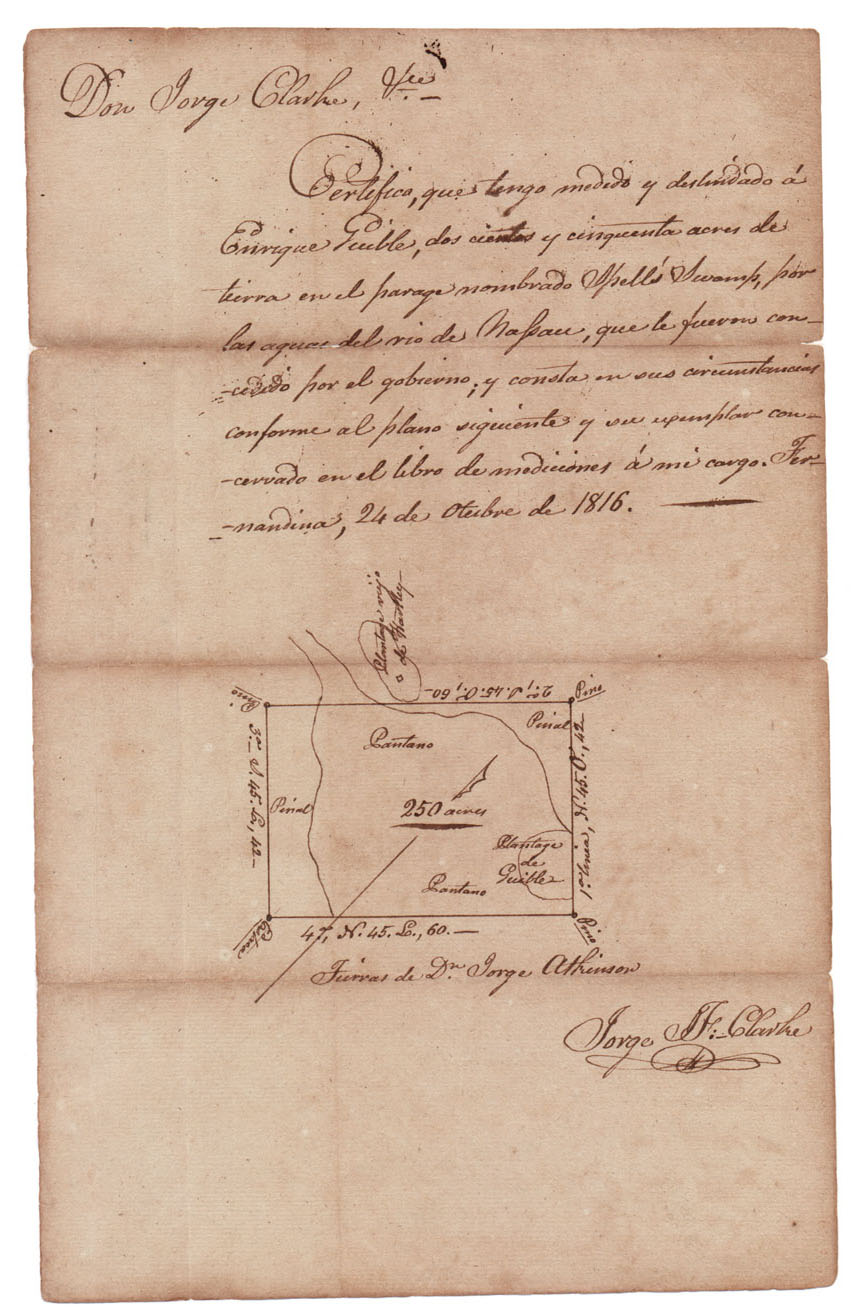 Don Jorge Clarke, &ce
Certifico, que tengo medido y deslindado á
Enrique Guible, dos cientos y cinquenta acres de
tierra en el parage nombrado Spell's Swamp, por
las aguas del rio de Nassau, que le fueron con-
-cedido por el gobierno; y consta en sus circunstancias
conforme al plano siguiente y su exemplar con-
-cervado en el libro de mediciónes á mi cargo. Fer-
-nandina, 24 de Otubre de 1816.
Plantage viejo
de Hartley
2ª, S. 45. O., 60-
Pino
Pino
Pinal
Pantano
3ª S. 45. L., 42-
1ª linia, N. 45. O., 42
Pinal
250 acres
Plantage
de
Guible
Pantano
Estaca
Pino
4ª, N. 45. L., 60.-
Tierras de Dn. Jorge Atkinson
Jorge J. F. Clarke